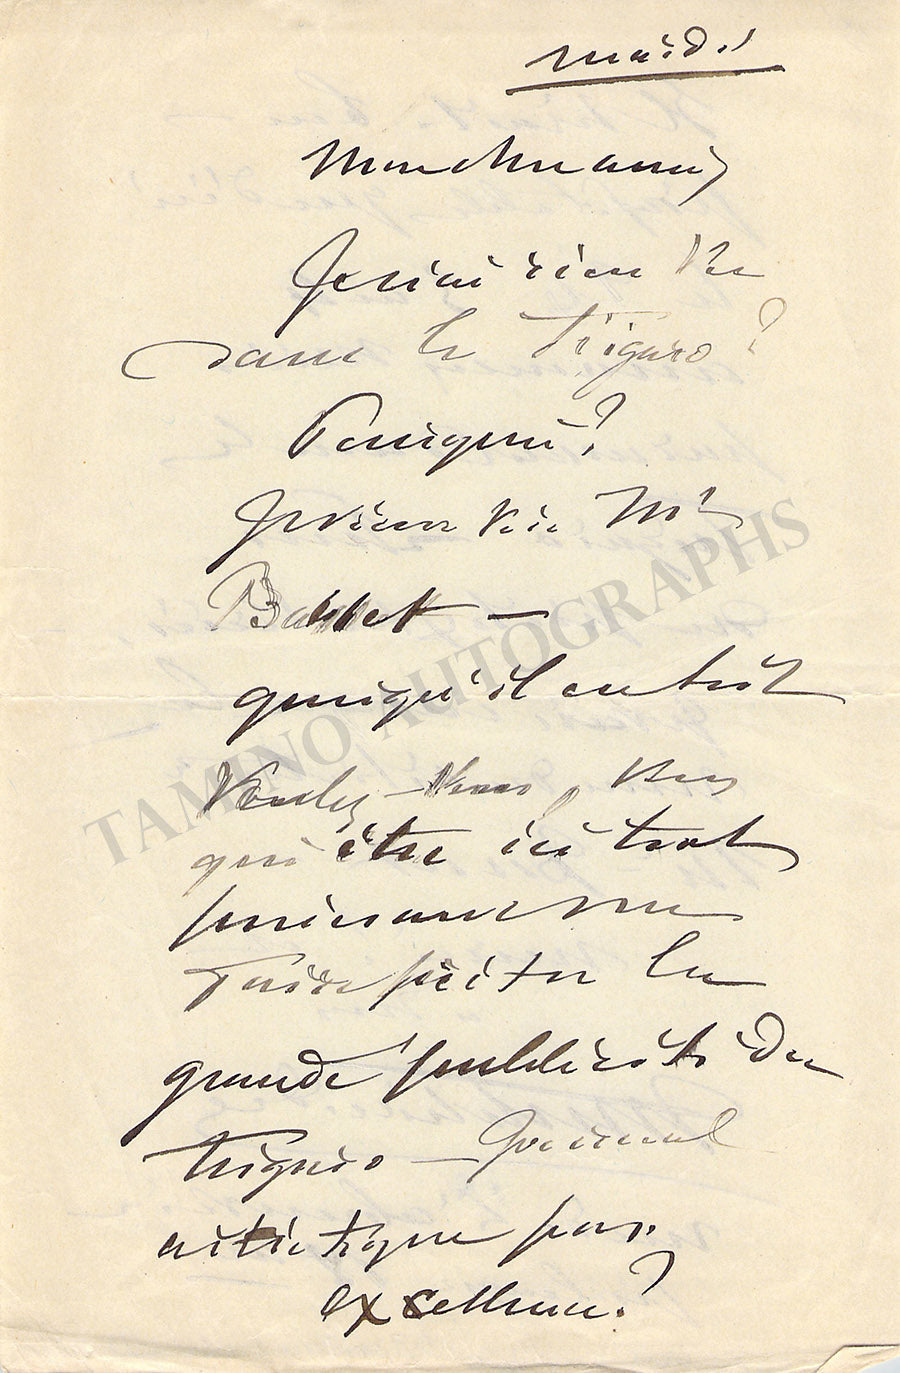 mardi
Mon cher ami,
Je n'ai rien vu
dans le Figaro?
Pourquoi?
Je viens voir Mr
quoiqu'il en soit
Voulez-vous,
qui être ici tout
puissant me
faire profiter de la
grande publicité du
Figaro — Journal
artistique par
excellence?
TAMINO AUTOGRAPHS